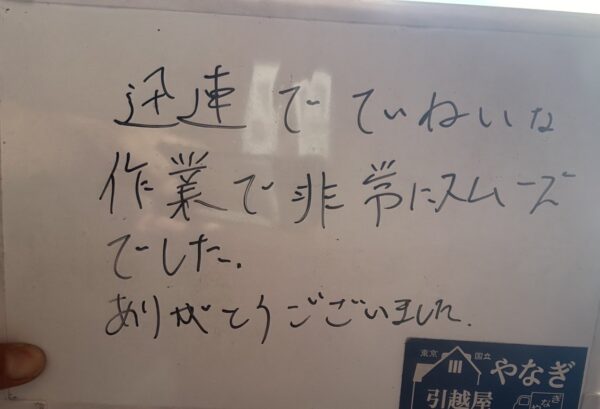 迅速でていねいな
作業で非常にスムーズ
でした.
ありがとうございました.
東京 国立
やなぎ
引越屋
やなぎ